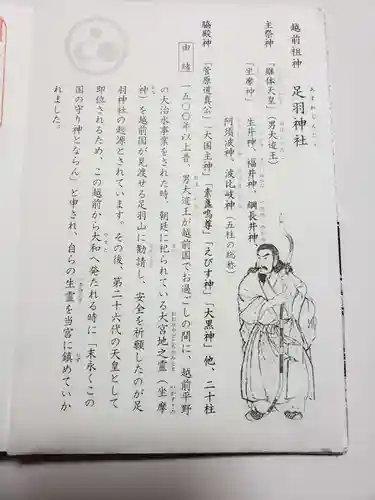 越前祖神
足羽神社
あすわじんじゃ
主祭神 「継体天皇」（男大迹王）
「坐摩神」 生井神、福井神、綱長井神
阿須波神、波比岐神（五柱の総称）
脇殿神 「菅原道真公」「大国主神」「素盞嗚尊」「えびす神」「大黒神」他、二十柱
由緒 一五〇〇年以上昔、男大迹王が越前国でお過ごしの間に、越前平野
の大治水事業をされた時、朝廷に祀られている大宮地之霊（坐摩
神）を越前国が見渡せる足羽山に勧請し、安全を祈願したのが足
羽神社の起源とされています。その後、第二十六代の天皇として
即位されるため、この越前から大和へ発たれる時に「末永くこの
国の守り神とならん」と申され、自らの生霊を当宮に鎮めていか
れました。